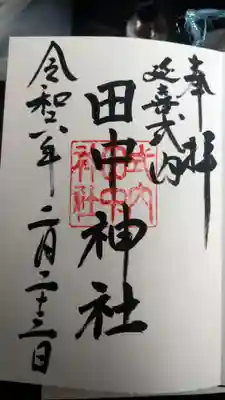 奉拝
延喜式内
田中神社
式内
田中
神社
令和六年二月二十三日